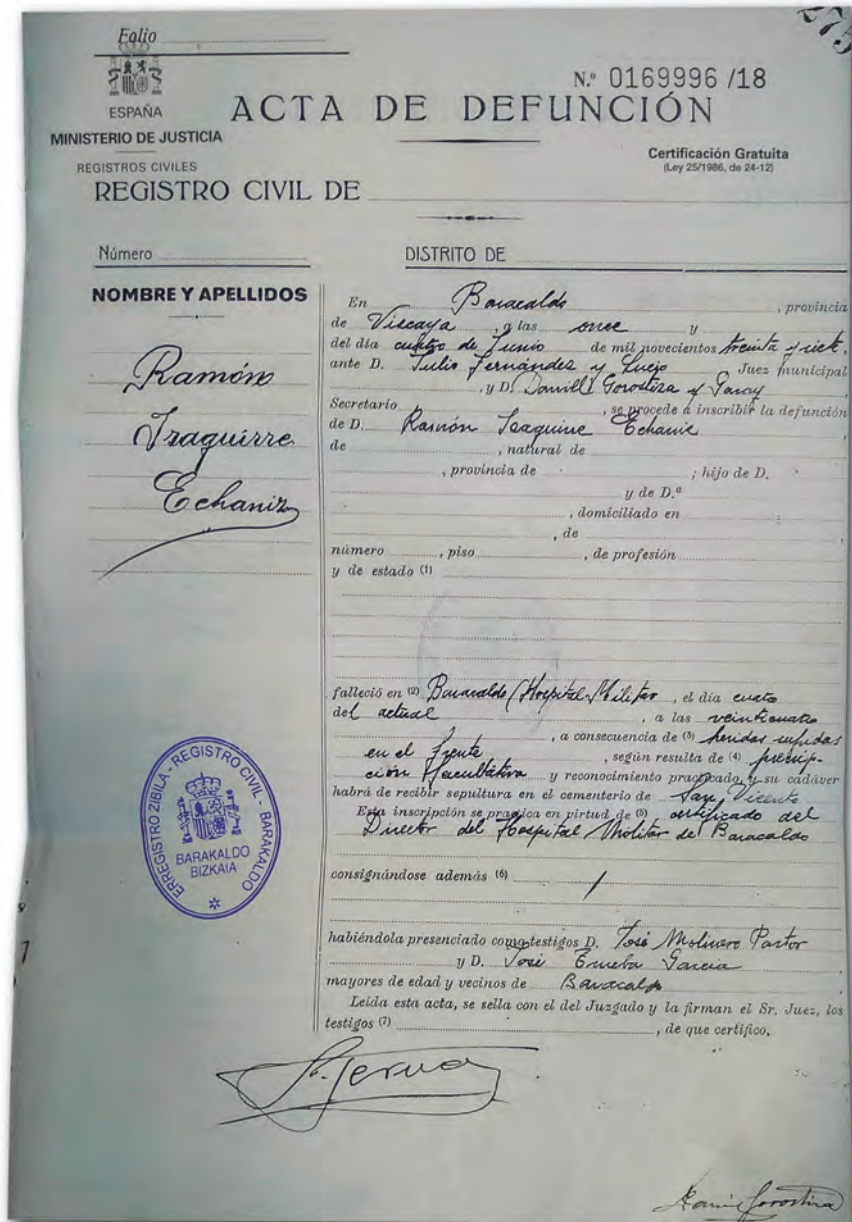 Folio
275
Nº 0169996 /18
ESPAÑA
ACTA DE DEFUNCIÓN
MINISTERIO DE JUSTICIA
Certificación Gratuita
(Ley 25/1986, de 24-12)
REGISTROS CIVILES
REGISTRO CIVIL DE
Número
DISTRITO DE
NOMBRE Y APELLIDOS
Ramón
Iraguirre
Echaniz
En Baracaldo, provincia
de Viscaya, a las once y
del día cuatro de Junio de mil novecientos treinta y siete,
ante D. Julio Fernández y Juez municipal
, y D. Gorostiza y Garay
Secretario, se procede a inscribir la defunción
de D. Ramón Iraguirre Echaniz
de, natural de
, provincia de; hijo de D.
y de D.ª
, domiciliado en
, de
número, piso, de profesión
y de estado (1)
falleció en (2) Baracaldo (Hospital Militar, el día cuatro
del actual, a las veinticuatro
, a consecuencia de (3) heridas sufridas
en el frente, según resulta de (4)
facultativa y reconocimiento practicado, y su cadáver
habrá de recibir sepultura en el cementerio de San Vicente
Esta inscripción se practica en virtud de (5) certificado del
Director del Hospital Militar de Baracaldo
consignándose además (6) /
habiéndola presenciado como testigos D. José Molinero Pastor
y D. José García
mayores de edad y vecinos de Baracaldo
Leída esta acta, se sella con el del Juzgado y la firman el Sr. Juez, los
testigos (7), de que certifico.
ERREGISTRO ZIBILA - REGISTRO CIVIL - BARAKALDO
BARAKALDO
BIZKAIA
Gorostiza